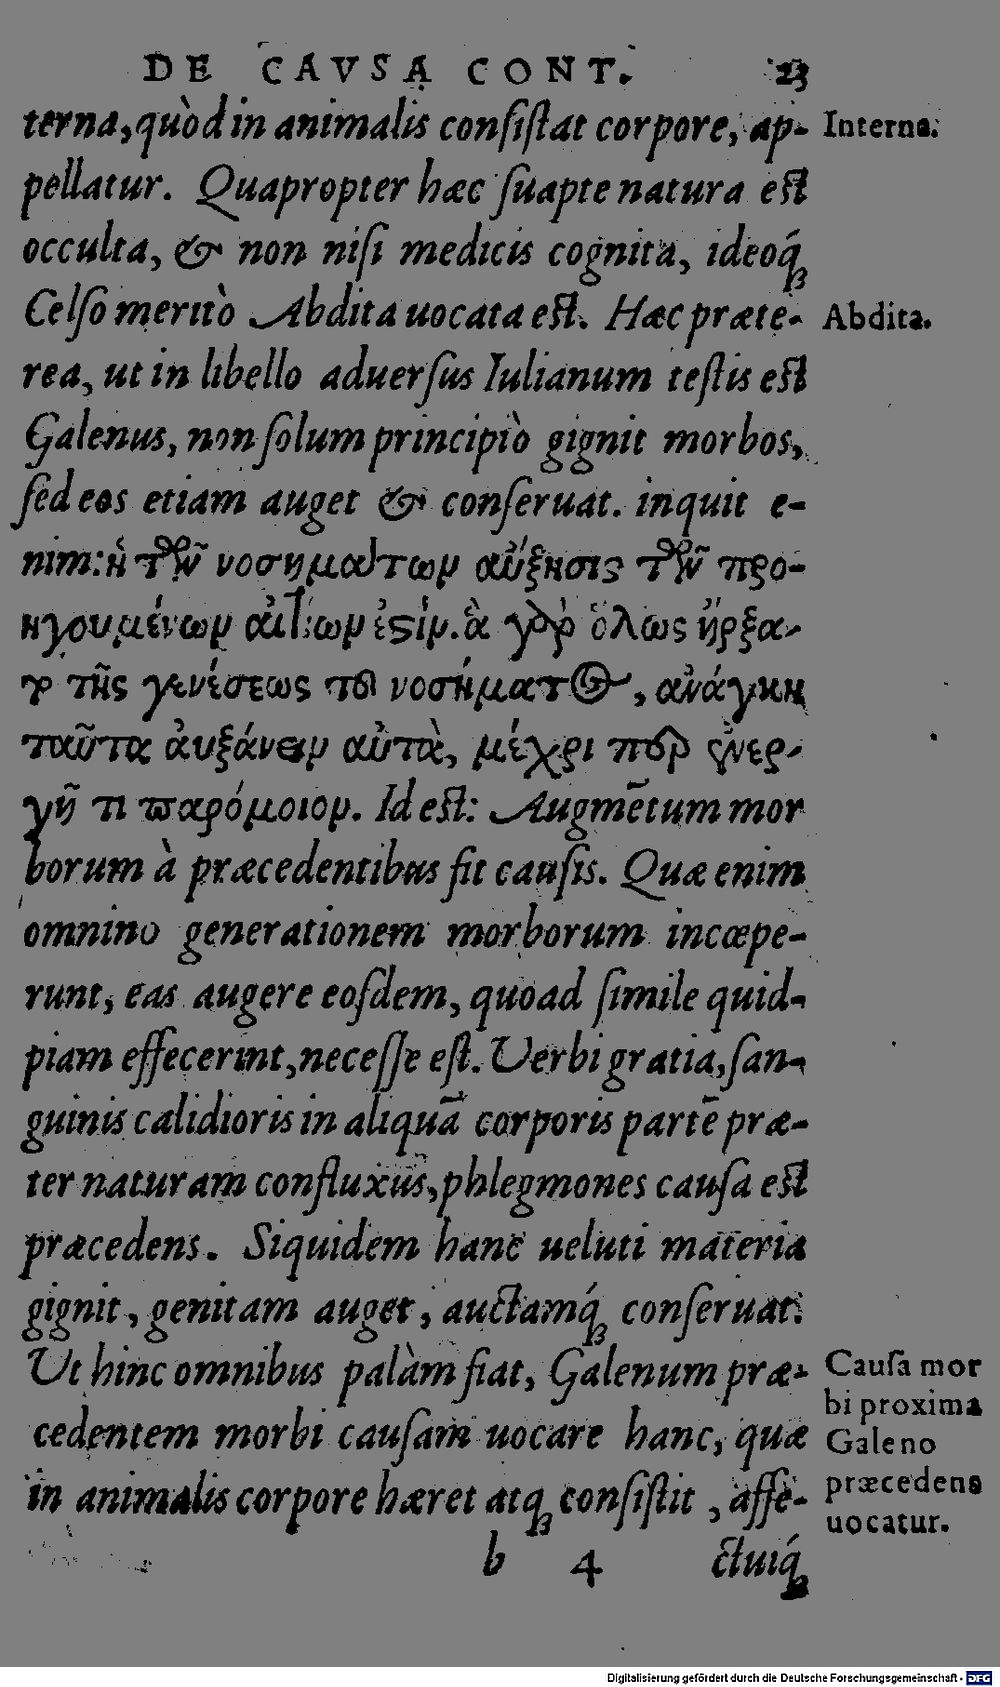 DE CAVSA CONT. 23
terna, quòd in animalis consistat corpore, ap- Interna.
pellatur. Quapropter hæc suapte natura est
occulta, & non nisi medicis cognita, ideoq́;
Celso meritò Abdita uocata est. Hæc præte- Abdita.
rea, ut in libello aduersus Iulianum testis est
Galenus, non solum principiò gignit morbos,
sed eos etiam auget & conseruat. inquit e-
nim: ἡ τῶν νοσημάτων αὔξησις τῶν προ-
ηγουμένων αἰτίων ἐστίν. ἃ γὰρ ὅλως ἤρξα-
το τῆς γενέσεως τοῦ νοσήματος, ἀνάγκη
ταῦτα ἀυξάνειν αὐτὰ, μέχρι περ ἂν ἐνερ-
γῇ τι παρόμοιον. Id est: Augmētum mor
borum à præcedentibus fit causis. Quæ enim
omnino generationem morborum incœpe-
runt, eas augere eosdem, quoad simile quid-
piam effecerint, necesse est. Uerbi gratia, san-
guinis calidioris in aliquā corporis partē præ-
ter naturam confluxus, phlegmones causa est
præcedens. Siquidem hanc ueluti materia
gignit, genitam auget, auctamq́; conseruat.
Ut hinc omnibus palàm fiat, Galenum præ- Causa mor
cedentem morbi causam uocare hanc, quæ bi proxima
Galeno
in animalis corpore hæret atq; consistit, affe- præcedens
uocatur.
b 4 ctuiq́;
Digitalisierung gefördert durch die Deutsche Forschungsgemeinschaft - DFG